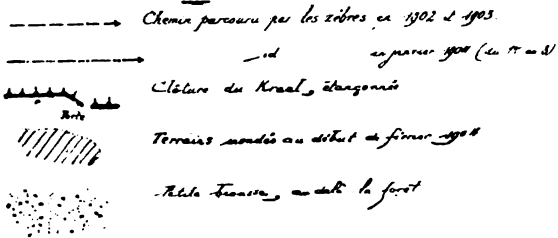 Chemin parcouru par les zèbres en 1902 et 1903.
— id en janvier 1904 (du 1er au 3)
Clôture du Kraal, étançonnée
Porte
Terrains inondés au début de février 1904
Petite brousse, au delà la forêt